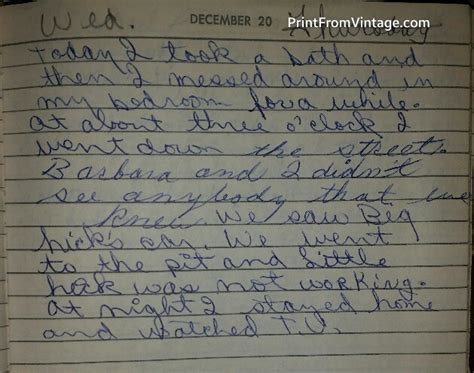 PrintFromVintage.com
Wed. DECEMBER 20
Today I took a bath and
then I messed around in
my bedroom for a while.
At about three o'clock I
went down the street.
Barbara and I didn't
see anybody that we
knew. We saw Big
Nick's car. We went
to the pit and Little
was not working.
At night I stayed home
and watched T.V.